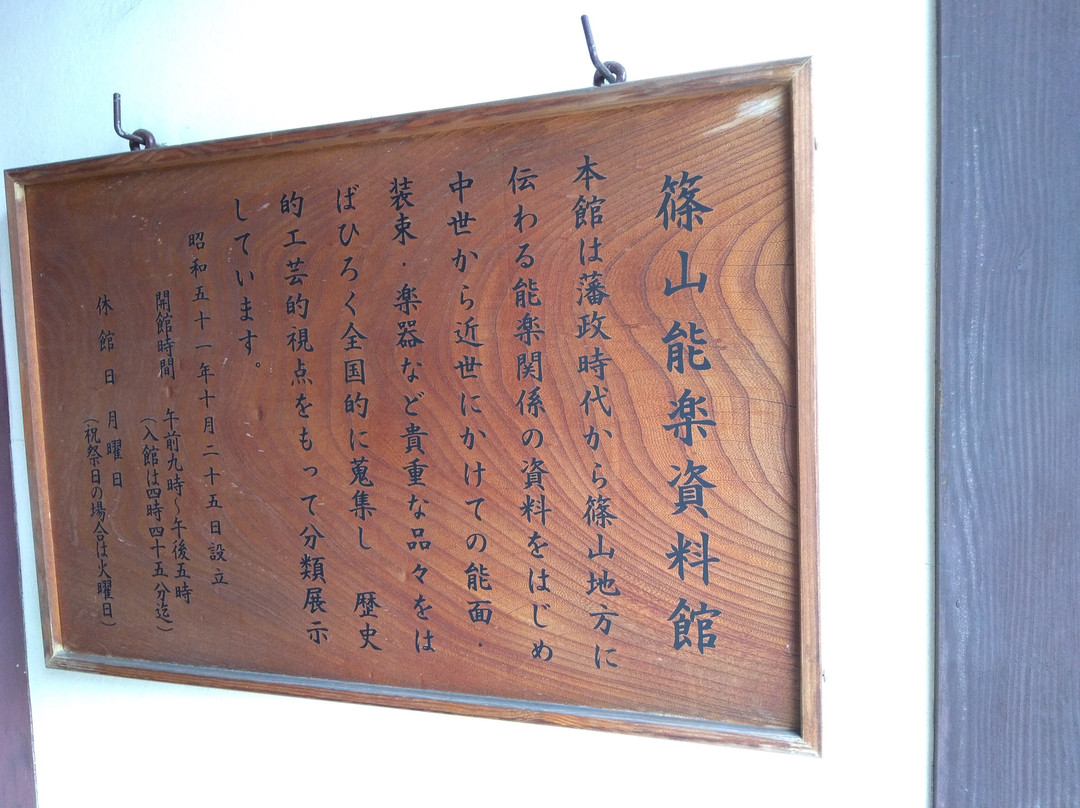 篠山能楽資料館
本館は藩政時代から篠山地方に
伝わる能楽関係の資料をはじめ
中世から近世にかけての能面・
装束・楽器など貴重な品々をは
ばひろく全国的に蒐集し 歴史
的工芸的視点をもって分類展示
しています。
昭和五十一年十月二十五日設立
開館時間 午前九時～午後五時
(入館は四時四十五分迄)
休館日 月曜日
(祝祭日の場合は火曜日)